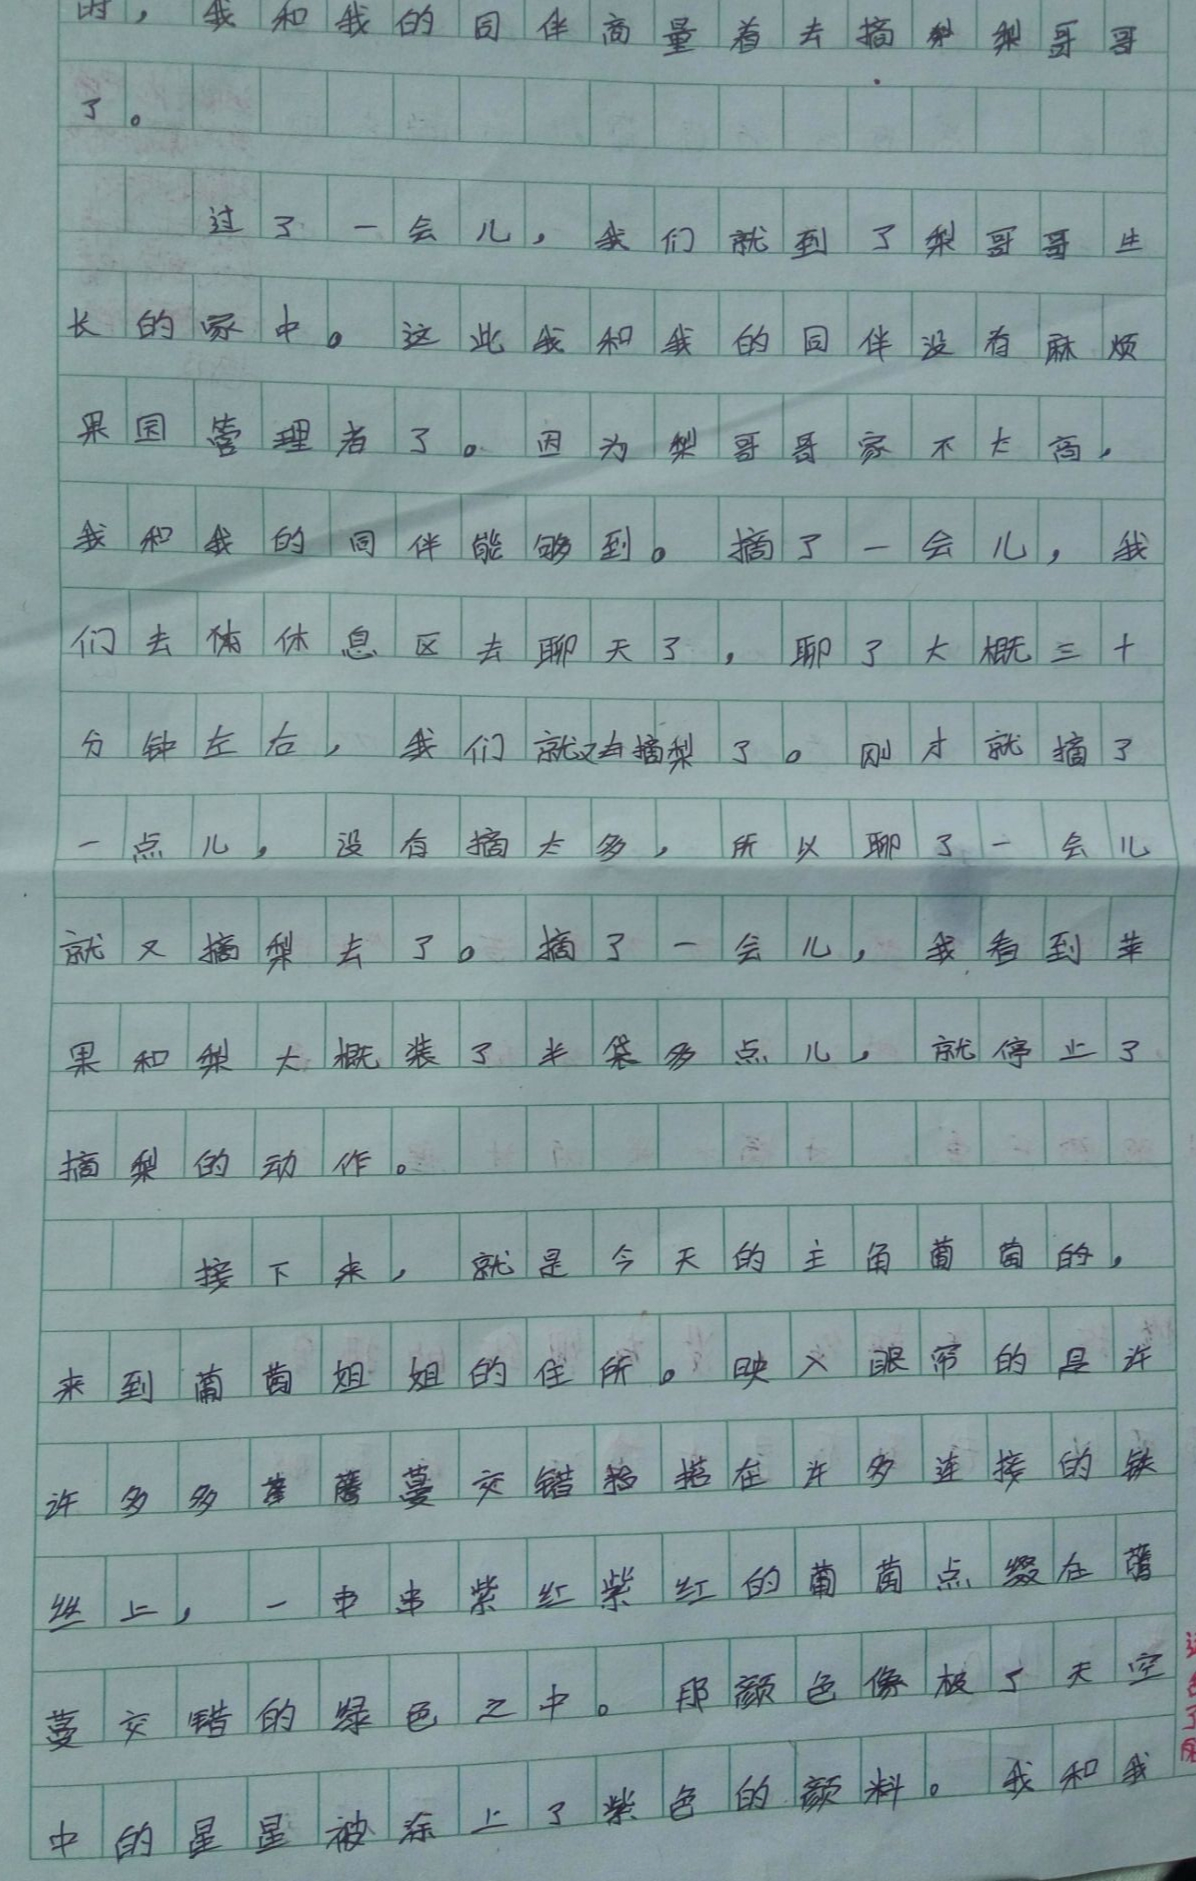 时，我和我的同伴商量着去摘梨梨哥哥
了。
过了一会儿，我们就到了梨哥哥生
长的家中。这此我和我的同伴没有麻烦
果园管理者了。因为梨哥哥家不太高，
我和我的同伴能够到。摘了一会儿，我
们去休息区去聊天了，聊了大概三十
分钟左右，我们就又去摘梨了。刚才就摘了
一点儿，没有摘太多，所以聊了一会儿
就又摘梨去了。摘了一会儿，我看到苹
果和梨大概装了半袋多点儿，就停止了
摘梨的动作。
接下来，就是今天的主角葡萄的，
来到葡萄姐姐的住所。映入眼帘的是许
许多多藤蔓交错搭在许多连接的铁
丝上，一串串紫红紫红的葡萄点缀在藤
蔓交错的绿色之中。那颜色像极了天空
中的星星被涂上了紫色的颜料。我和我